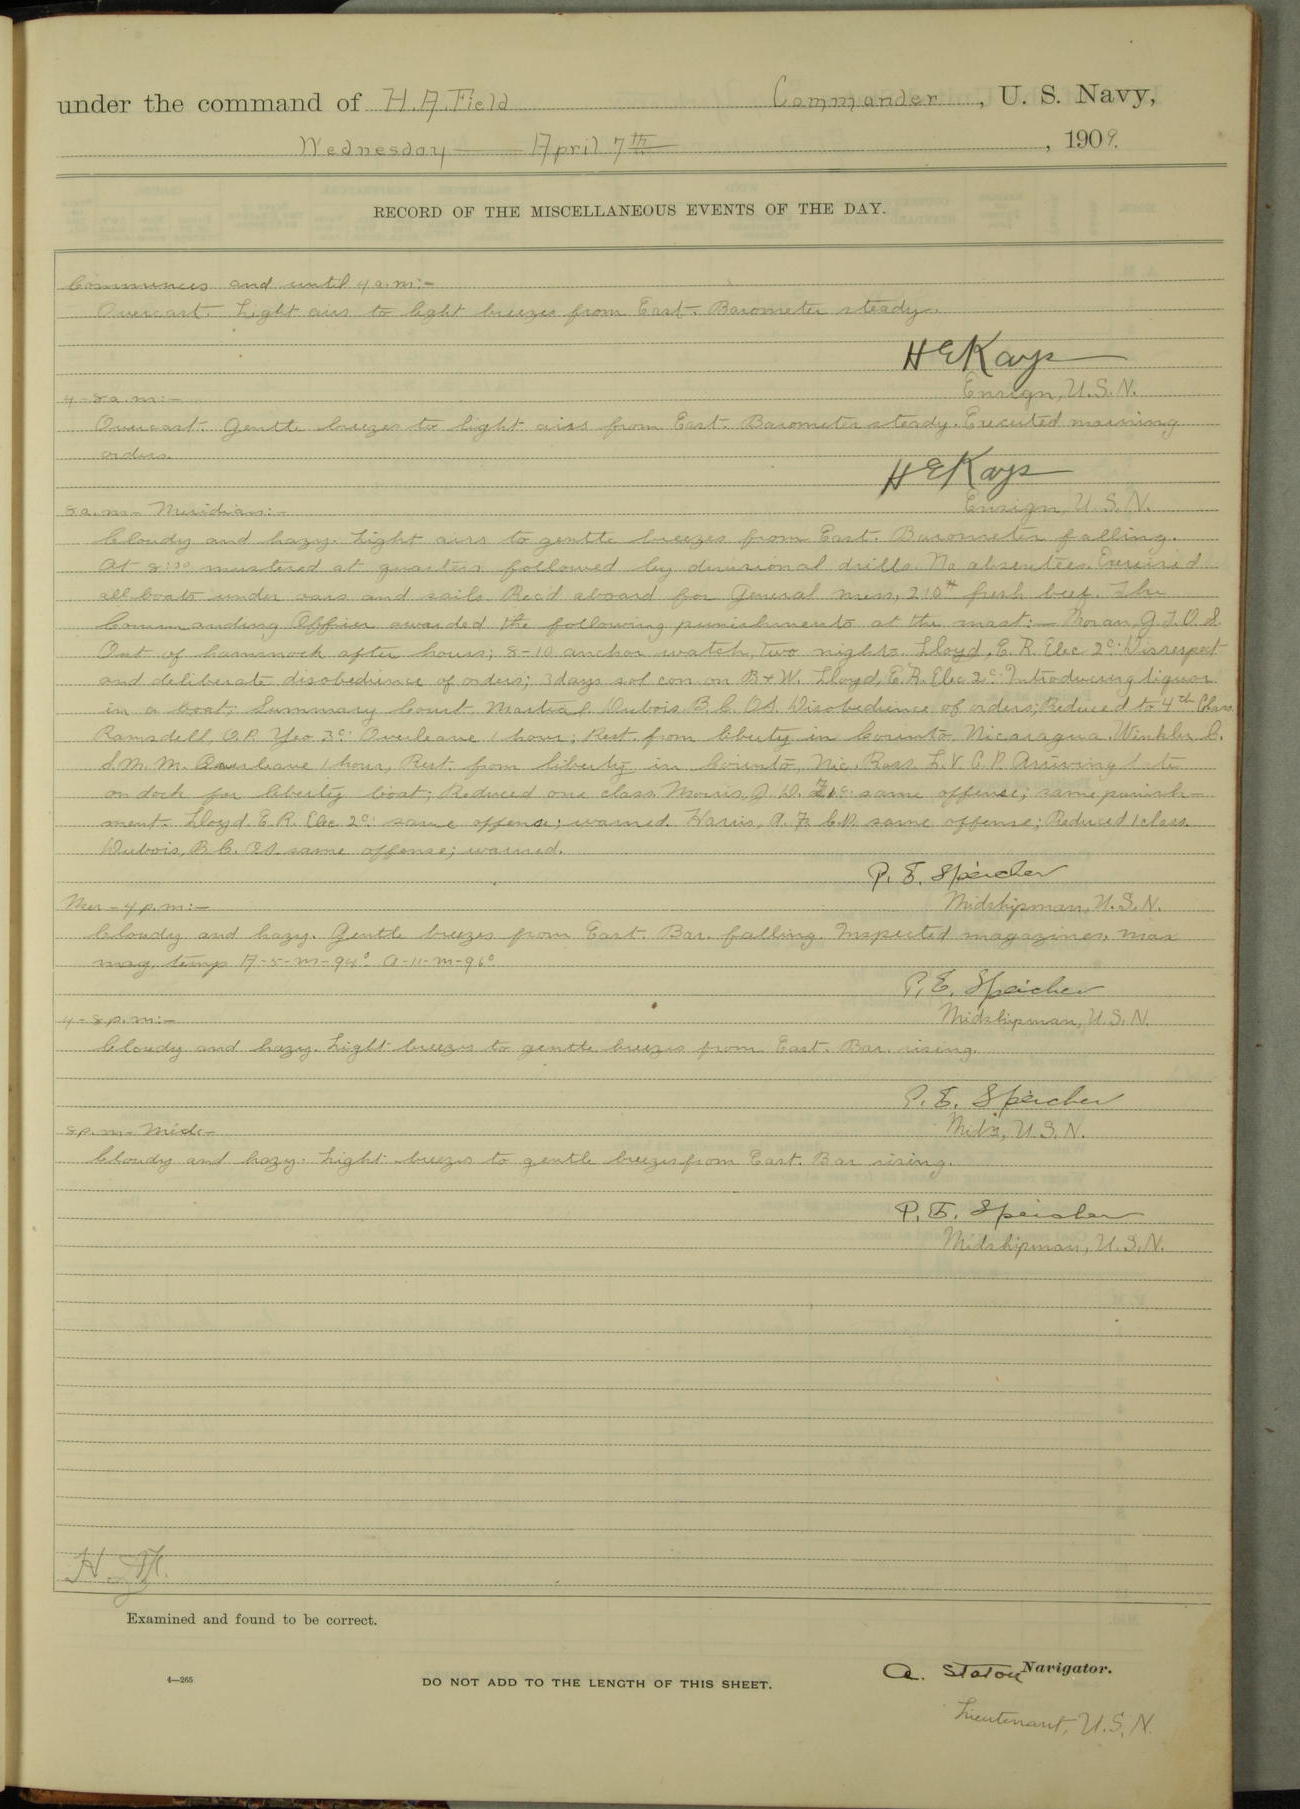 under the command of H.A. Field Commander, U. S. Navy,
Wednesday April 7th, 1909.
RECORD OF THE MISCELLANEOUS EVENTS OF THE DAY.
Commences and until 4 a.m:-
Overcast. Light airs to light breezes from East. Barometer steady.
H E Kays
Ensign, U.S.N.
4-8 a.m:-
Overcast. Gentle breezes to light airs from East. Barometer steady. Executed morning
orders.
H E Kays
Ensign, U.S.N.
8 a.m - Meridian:-
Cloudy and hazy. Light airs to gentle breezes from East. Barometer falling.
At 8:30 mustered at quarters followed by divisional drills. No absentees. Exercised
all boats under oars and sails. Rec'd aboard for General mess, 210# fresh beef. The
Commanding Officer awarded the following punishments at the mast:- J. F. O.S.
Out of hammock after hours; 8-10 anchor watch, two nights. Lloyd, E. R. Elec 2c. Disrespect
and deliberate disobedience of orders; 3 days sol con on B+W. Lloyd, E.R. Elec 2c. Introducing liquor
in a boat; Summary Court Martial. Dubois B.C. OS. Disobedience of orders; Reduced to 4th Class.
Ramsdell, O.P. Yeo 3c. Overleave 1 hour; Rest. from liberty in Corinto, Nicaragua. Winkler C.
S.M.M. Overleave 1 hour, Rest. from liberty in Corinto, Nic. Ross. L.V. C.P. Arriving late
on dock for liberty boat; Reduced one class. Morris, J. W. same offense; same punish-
ment. Lloyd. E.R. Elec 2c. same offense; warned. Harris, A. F. C.P. same offense; Reduced 1 class.
Dubois, B.C. OS. same offense; warned.
P. E. Speicher
Midshipman, U.S.N.
Mer - 4 p.m:-
Cloudy and hazy. Gentle breezes from East. Bar. falling. Inspected magazines, max
mag. temp A-5-m-94° A-11-m-96°
P. E. Speicher
Midshipman, U.S.N.
4-8 p.m:-
Cloudy and hazy. Light breezes to gentle breezes from East. Bar. rising.
P. E. Speicher
Mids, U.S.N.
8 p.m - Mid:-
Cloudy and hazy. Light breezes to gentle breezes from East. Bar rising.
P. E. Speicher
Midshipman, U.S.N.
Examined and found to be correct.
A. Staton Navigator.
4—265
DO NOT ADD TO THE LENGTH OF THIS SHEET.
Lieutenant, U.S.N.